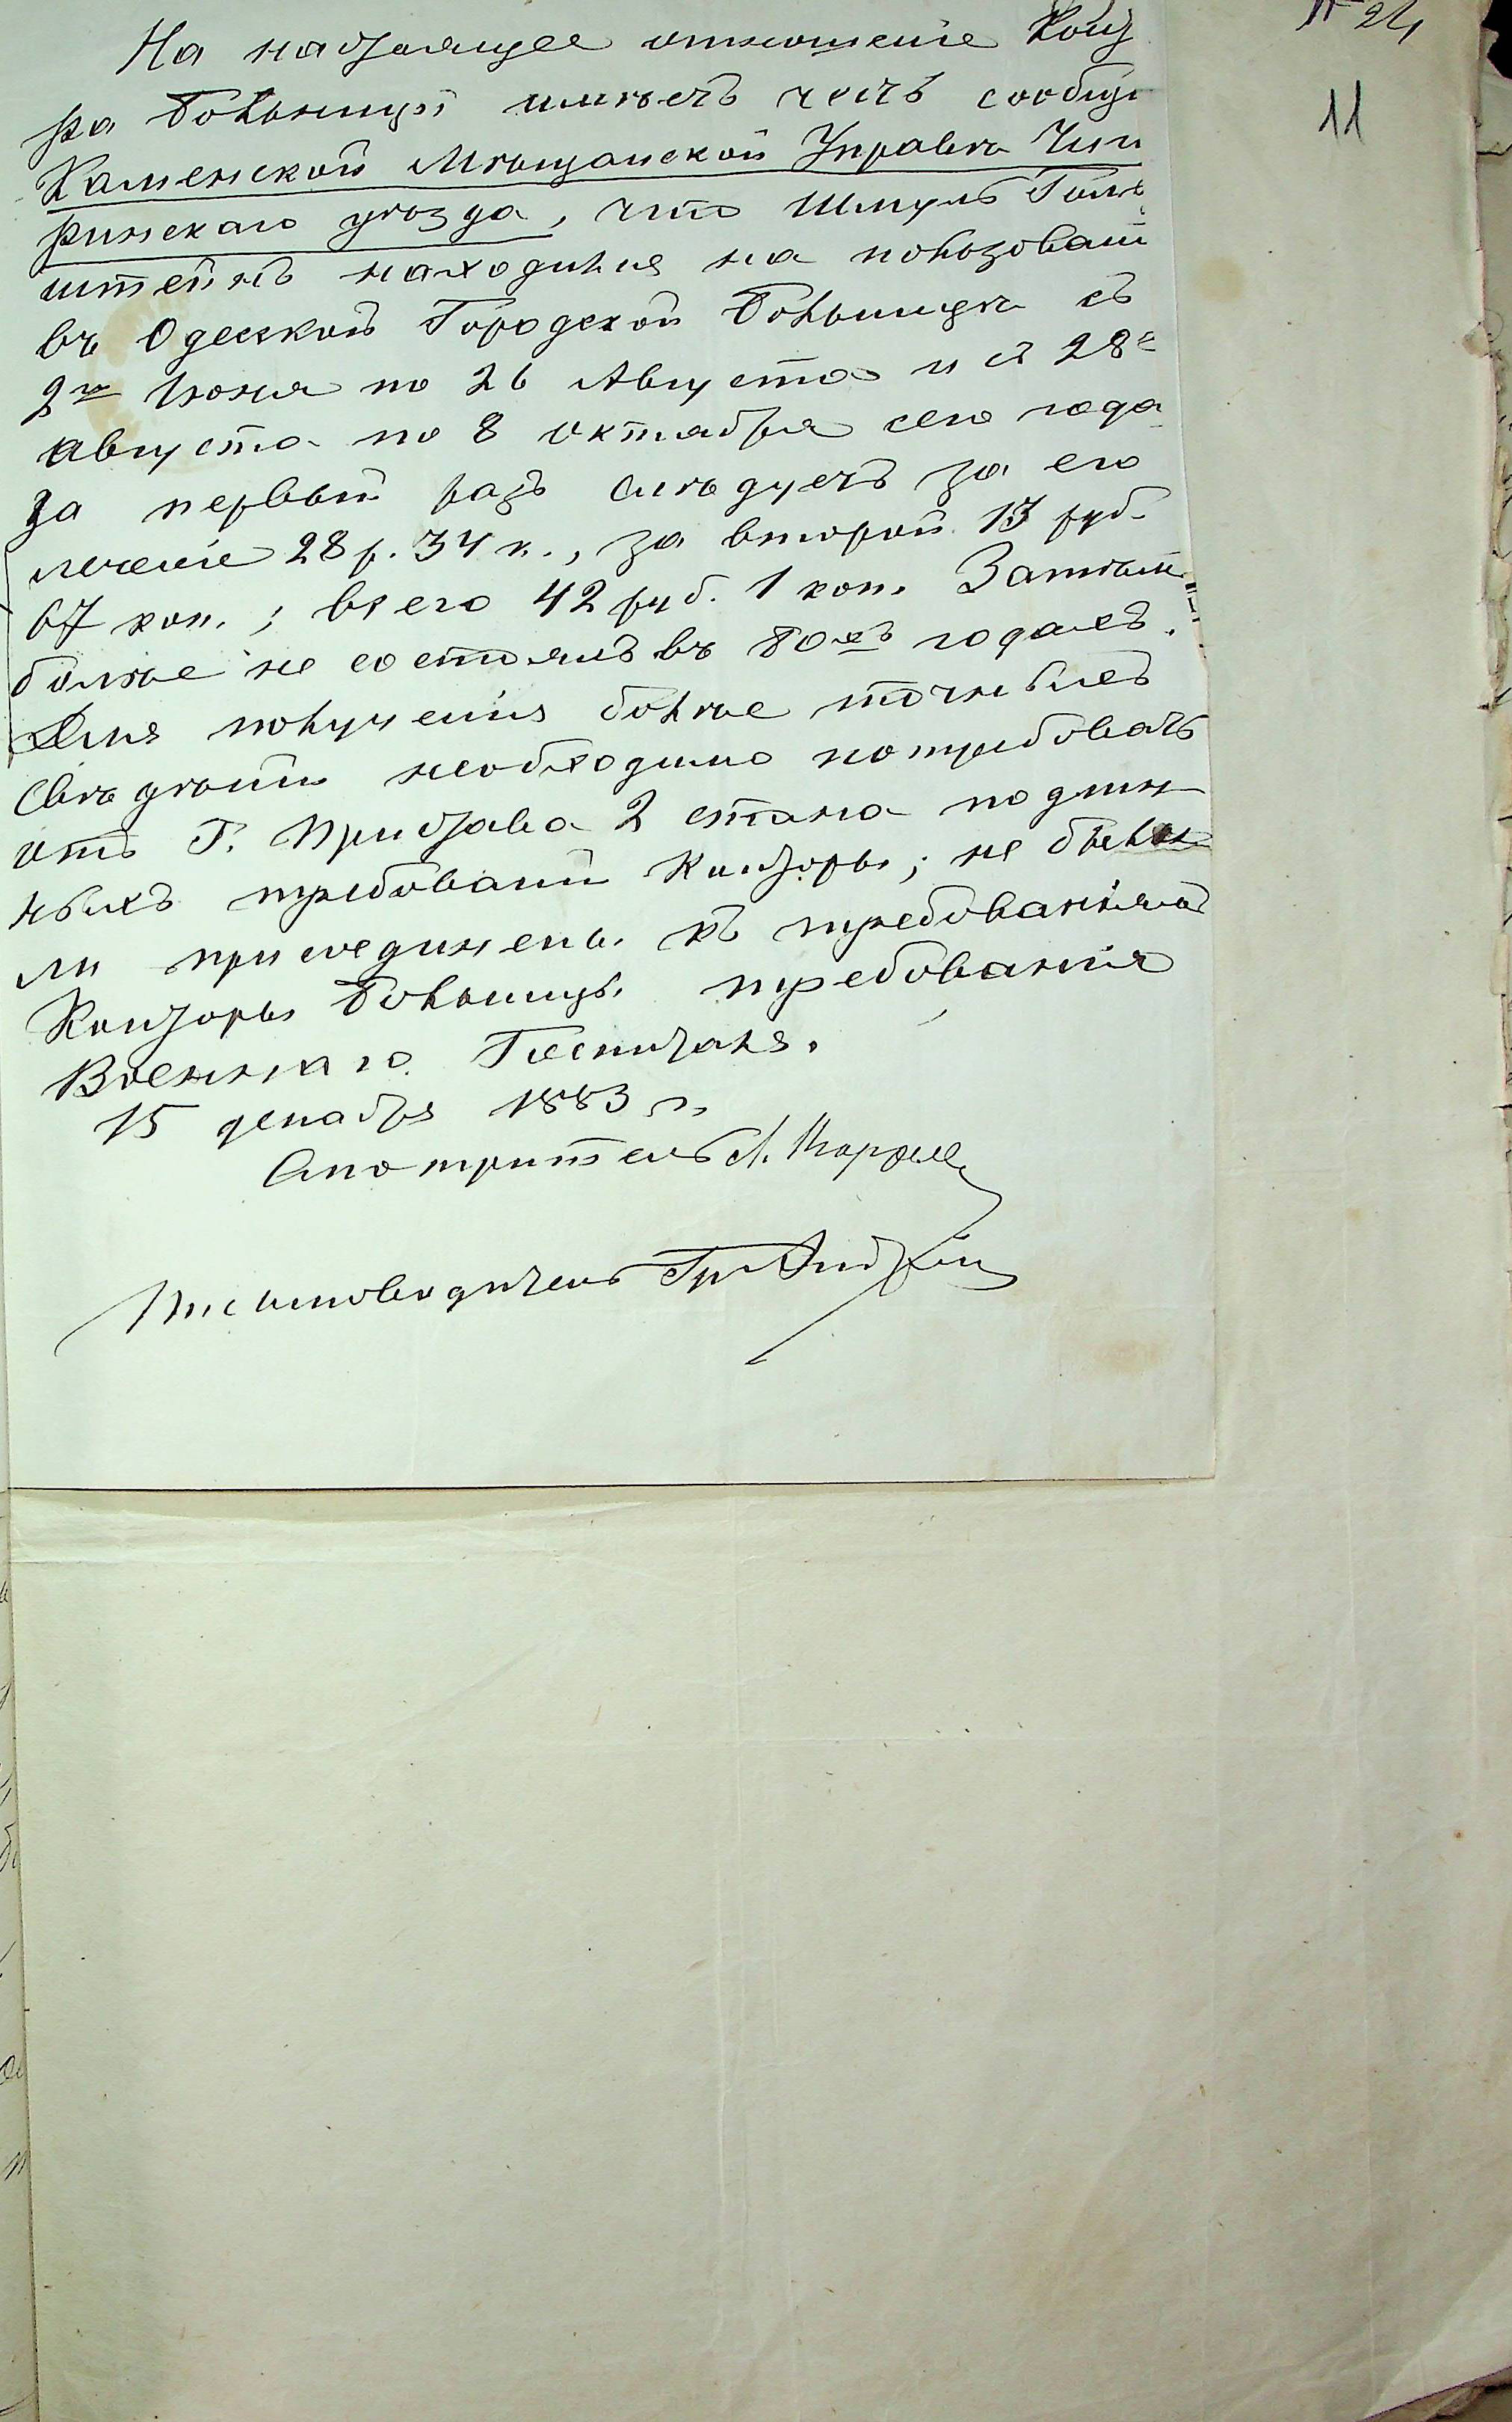 № 24
11
На настоящее отношеніе Конто
ра Больницы имѣетъ честь сообщи
Каменской Мѣщанской Управѣ Чиги
ринскаго уѣзда, что Шмуль Голь
штейнъ находился на пользованіи
въ Одесской Городской Больницѣ съ
2го Іюня по 26 Августа и съ 28го
августа по 8 октября сего года
за первый разъ слѣдуетъ за его
леченіе 28 р. 34 к., за второй 13 руб.
67 коп.; всего 42 руб. 1 коп. Затѣмъ
болѣе не состоялъ въ 80хъ годахъ.
Для полученія болѣе точныхъ
свѣдѣній необходимо потребовать
отъ Г. Пристава 2 стана подлин
ныхъ требованій Конторы; не были
ли присоединены къ требованіямъ
Конторы Больницы требованія
Военнаго Госпиталя.
15 декабря 1883 г.
Смотритель
Письмоводитель